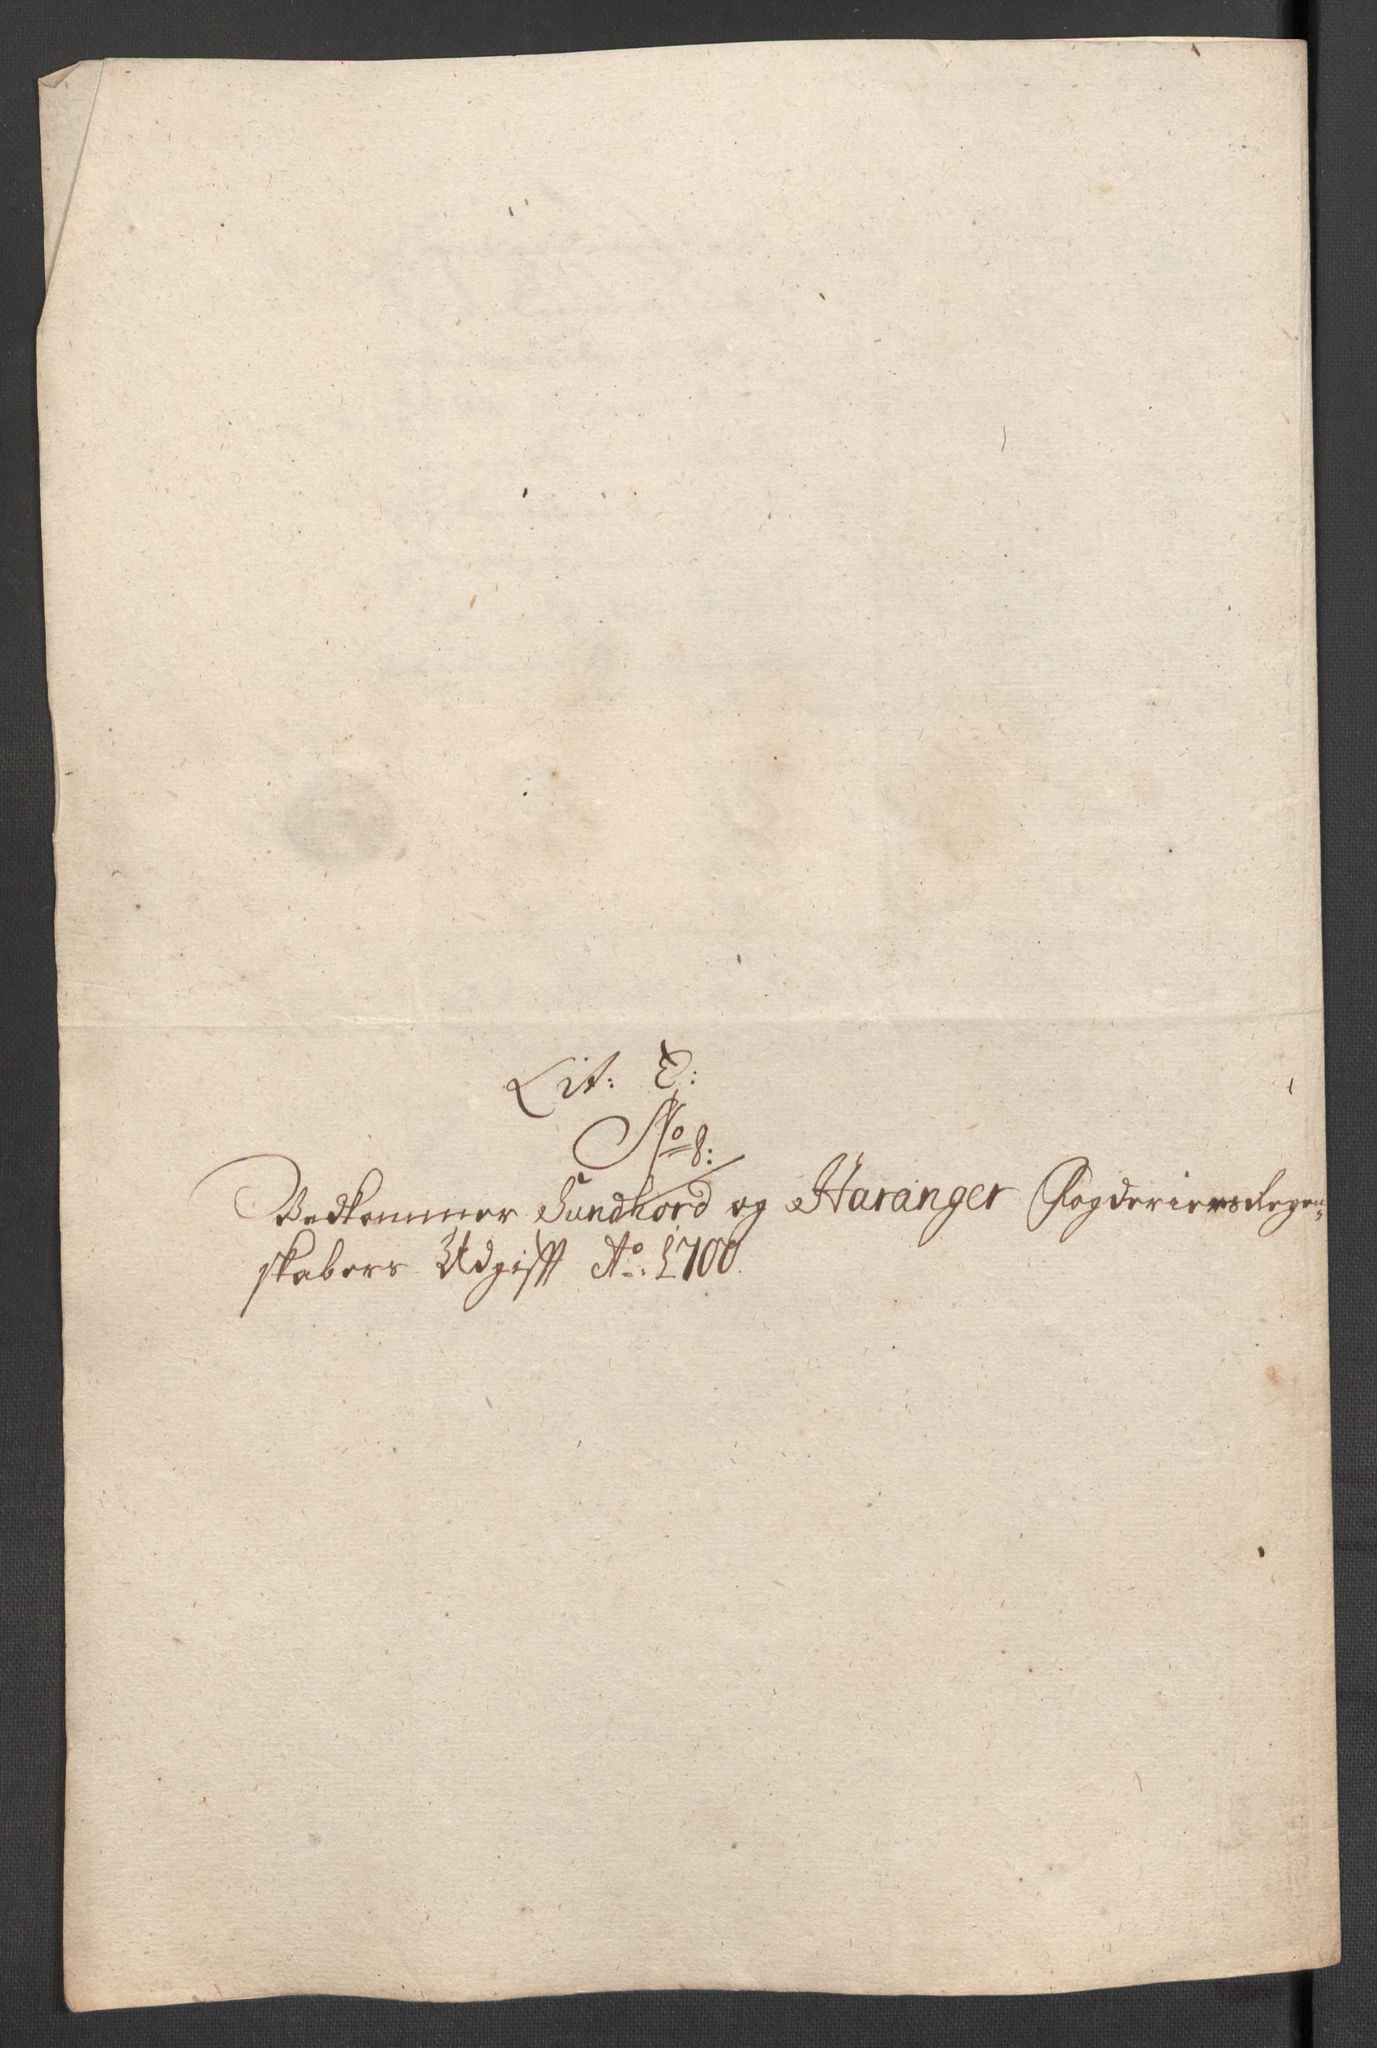 Lit: E:
No 8:
Vedkommer Sundhord og Haranger Fogderiers Regen-
skabers Udgifft Ao: 1700.